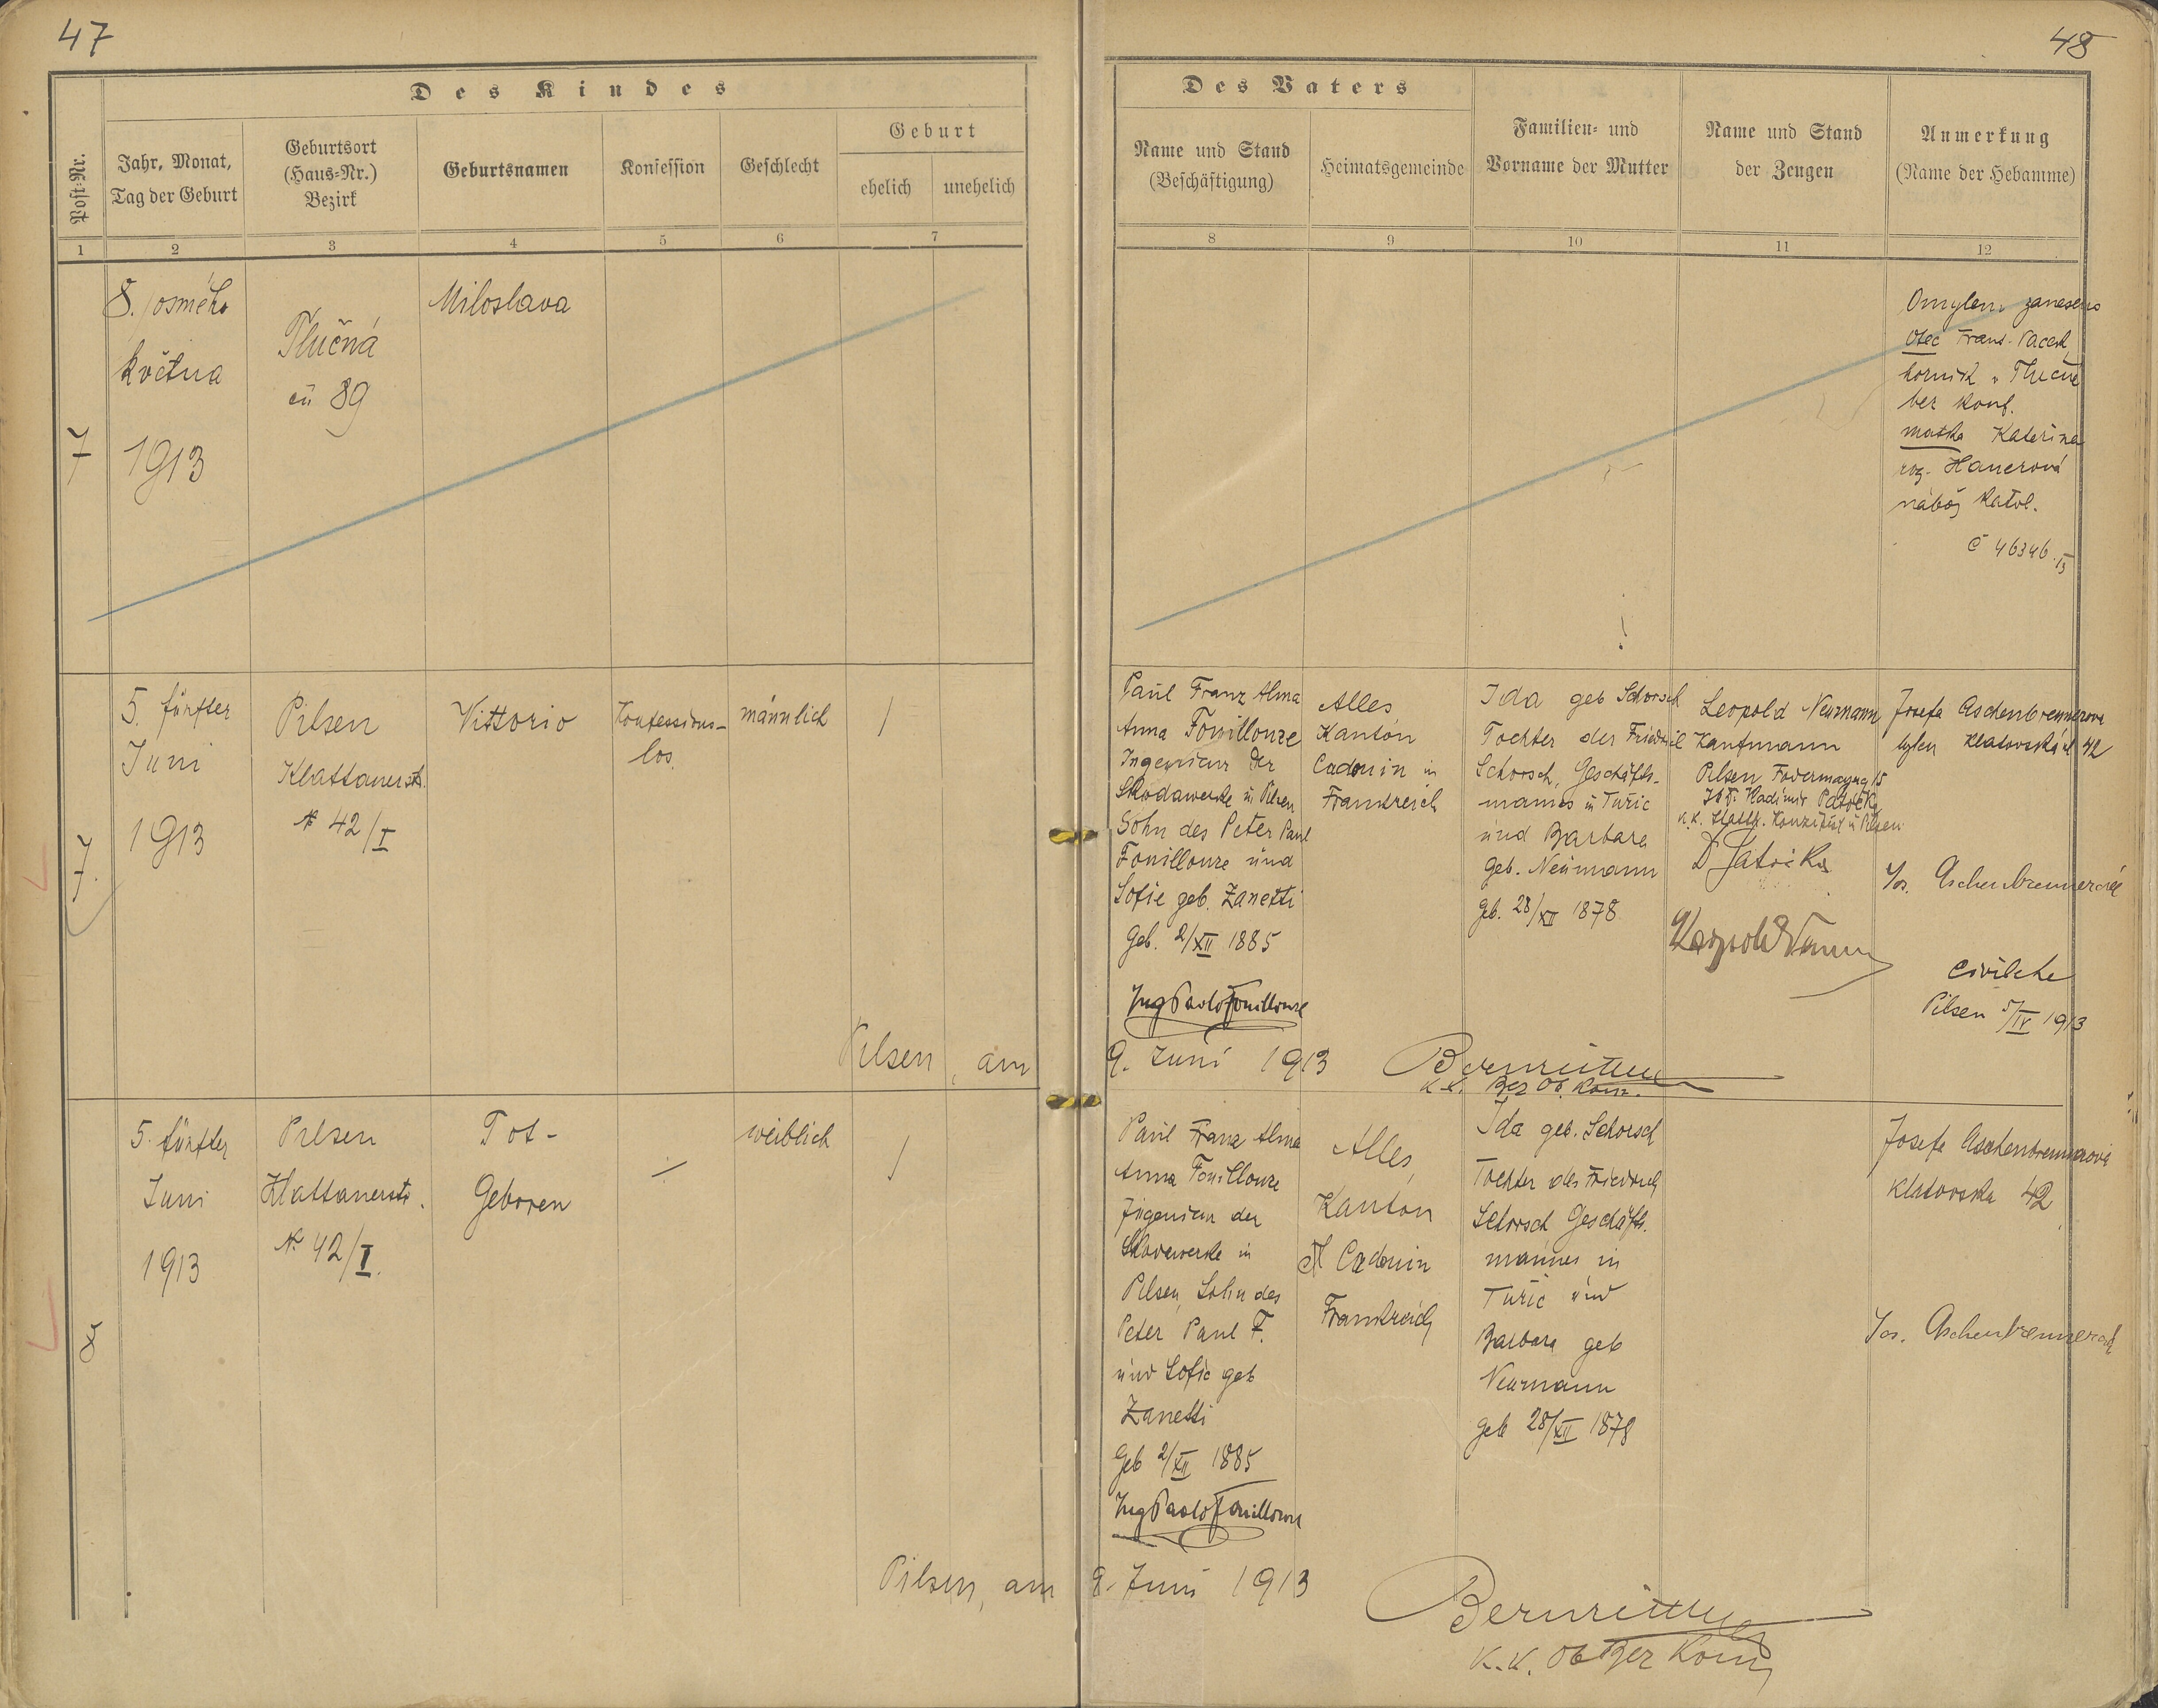 47
48
Des Kindes
Post-Nr.
Jahr, Monat,
Tag der Geburt
Geburtsort
(Haus-Nr.)
Bezirk
Geburtsnamen
Konfession
Geschlecht
Geburt
ehelich
unehelich
Des Vaters
Name und Stand
(Beschäftigung)
Heimatsgemeinde
Familien- und
Vorname der Mutter
Name und Stand
der Zeugen
Anmerkung
(Name der Hebamme)
1 2 3 4 5 6 7 8 9 10 11 12
7
8. osmého
května
1913
Tlučná
89
Miloslava
Omylem zaneseno
Otec
horník v Tlučné
bez konf.
matka Kateřina
roz. Hanerová
nábož. katol.
č 46346
7.
5. fünfter
Juni
1913
Pilsen
Klattauerstr.
№ 42/I
Vittorio
Konfessions-
los
männlich
/
Paul Franz Alma
Anna Fouillouze
Ingenieur der
Skodawerke in Pilsen
Sohn des Peter Paul
Fouillouze und
Sofie geb. Zanetti
Geb. 2/XII 1885
Ing Paolo Fouillouze
Alles
Kanton
Cadouin in
Frankreich
Ida geb Schorsch
Tochter des
Schorsch, Geschäfts-
mannes in Turic
und Barbara
geb. Neumann
geb. 28/XII 1878
Leopold Neumann
Kaufmann
Pilsen 15
k.k. in Pilsen
Josefa Aschenbrennerova
Klatovská 42
Jos. Aschenbrennerová
Civilehe
Pilsen 5/IV 1913
Pilsen, am 9. Juni 1913
8
5. fünfter
Juni
1913
Pilsen
Klattauerstr.
№ 42/I.
Tot-
Geboren
—
weiblich
/
Paul Franz Alma
Anna Fouillouze
Ingenieur der
Skodawerke in
Pilsen, Sohn des
Peter Paul F.
und Sofie geb
Zanetti
Geb 2/XII 1885
Ing Paolo Fouillouze
Alles,
Kanton
Cadouin
Frankreich
Ida geb. Schorsch
Tochter des Friedrich
Schorsch, Geschäfts-
mannes in
Turic und
Barbara geb
Neumann
geb 28/XII 1878
Josefa Aschenbrennerová
Klatovska 42
Jos. Aschenbrennerová
Pilsen, am 9. Juni 1913